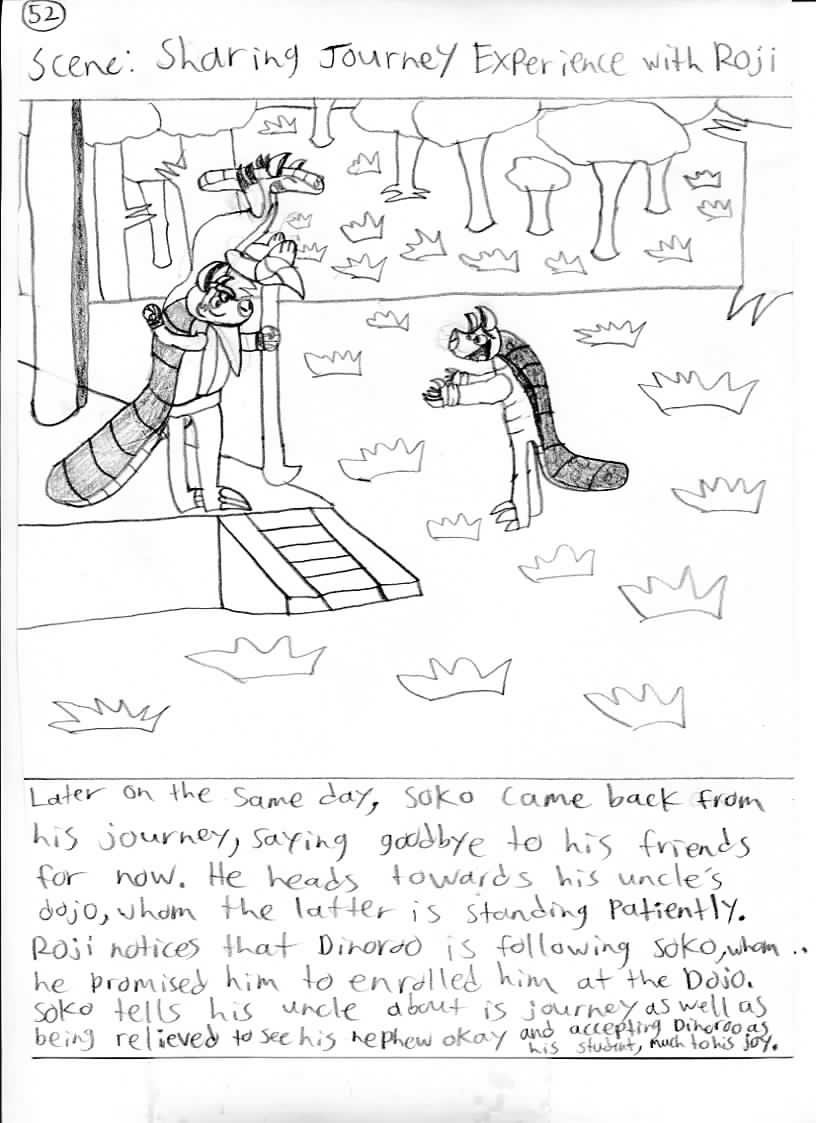 52
Scene: Sharing Journey Experience with Roji
Later on the same day, Soko came back from
his journey, saying goodbye to his friends
for now. He heads towards his uncle's
dojo, whom the latter is standing patiently.
Roji notices that Dinoroo is following Soko, whom ..
he promised him to enrolled him at the Dojo.
Soko tells his uncle about is journey as well as
being relieved to see his nephew okay and accepting Dinoroo as
his student, much to his joy.